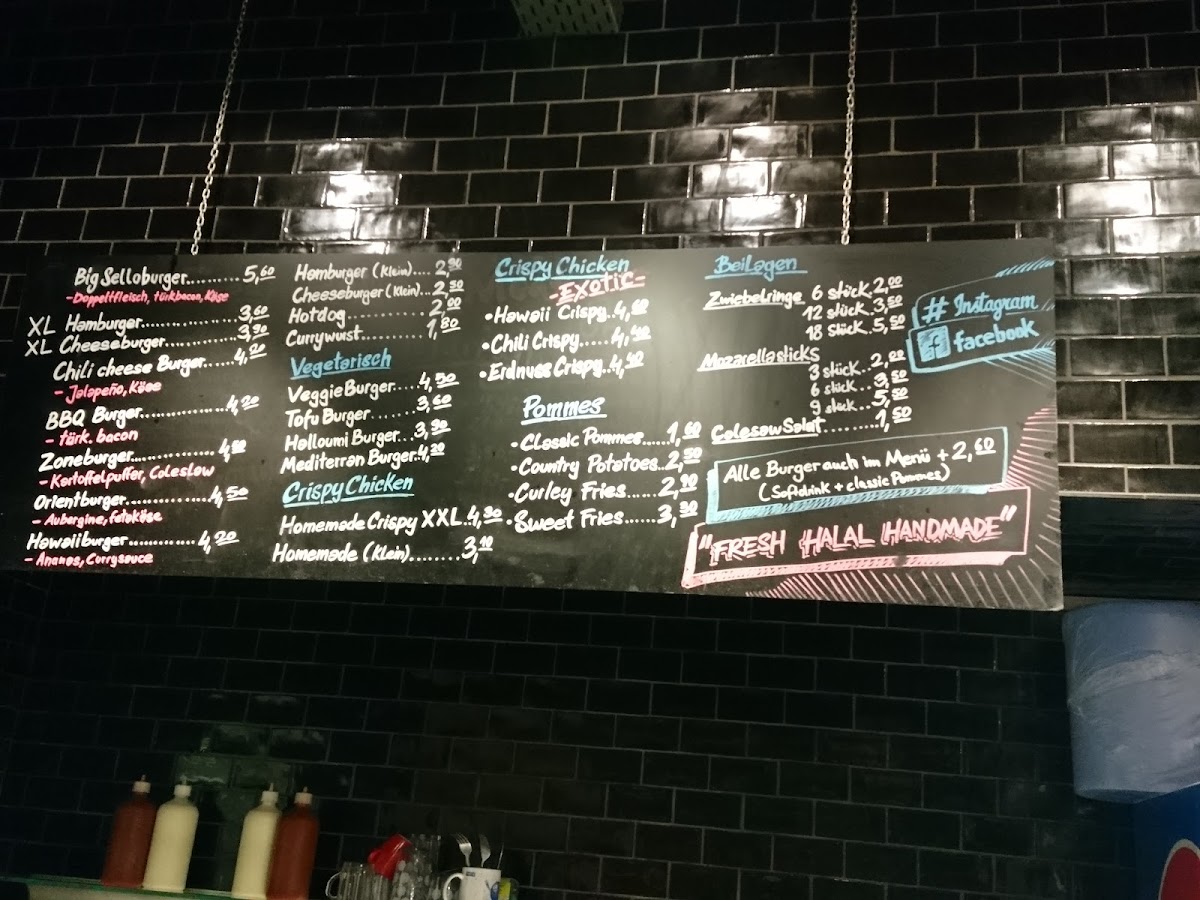 Big Selloburger........5,60
-Doppeltfleisch, türkbacon, Käse
XL Hamburger............3,60
XL Cheeseburger.........3,90
Chili cheese Burger....4,20
- Jalapeño, Käse
BBQ Burger..............4,20
- türk. bacon
Zoneburger..............4,80
- Kartoffelpuffer, Coleslow
Orientburger............4,50
- Aubergine, fetakäse
Hawaiiburger.............4,20
- Ananas, Currysauce
Hamburger (Klein)....2,90
Cheeseburger (Klein)...2,50
Hotdog..............2,00
Currywust............1,80
Vegetarisch
Veggie Burger....4,50
Tofu Burger.......3,60
Halloumi Burger...3,90
Mediterran Burger.4,20
Crispy Chicken
Homemade Crispy XXL.4,90
Homemade (Klein)........3,10
Crispy Chicken
-EXOTIC-
•Hawaii Crispy..4,60
•Chili Crispy.....4,40
•Erdnuss Crispy..4,40
Pommes
•Classic Pommes.....1,60
•Country Potatoes..2,50
•Curley Fries.....2,90
•Sweet Fries......3,30
BeiLagen
Zwiebelringe 6 stück.2,00
12 stück.3,50
18 stück.5,50
Mozarellasticks
3 stück..2,00
6 stück...3,50
9 stück...5,50
Coleslow Salat.........1,50
# Instagram
f facebook
Alle Burger auch im Menü + 2,60
(Softdrink + classic Pommes)
"FRESH HALAL HANDMADE"